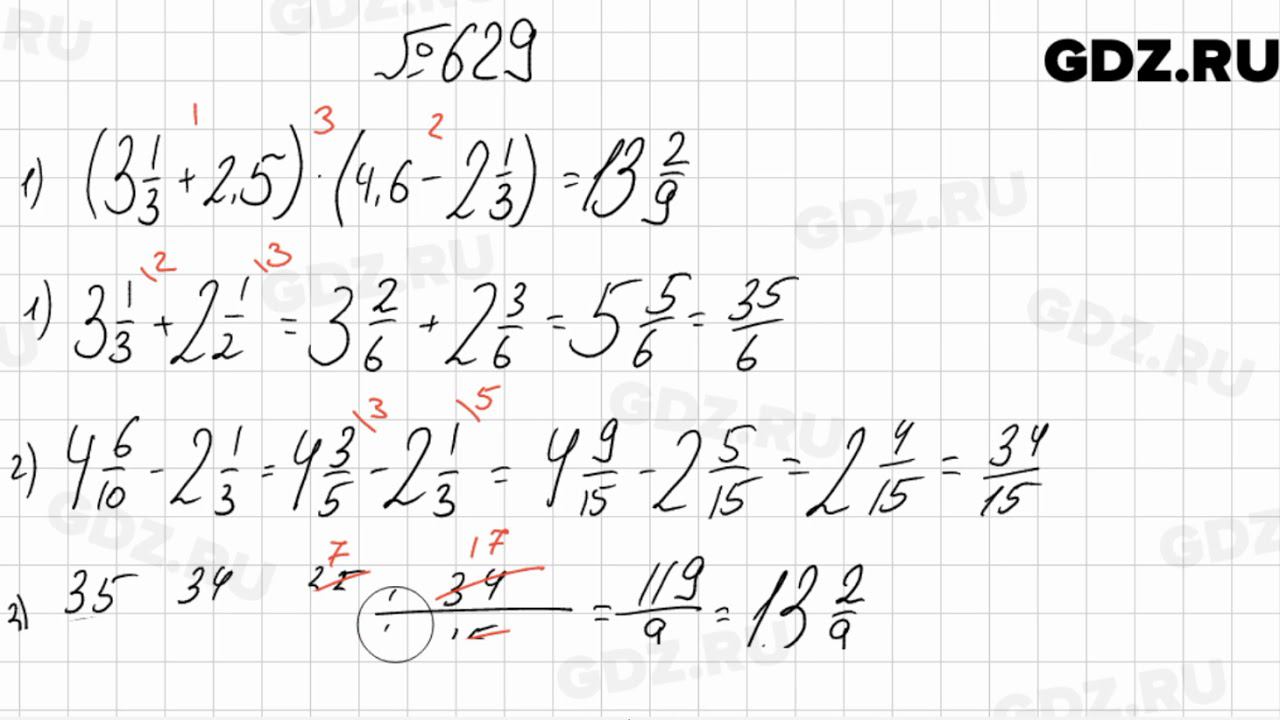 №629
GDZ.RU
1) (3 1/3 + 2,5) · (4,6 − 2 1/3) = 13 2/9
1 3 2
1) 3 1/3 \2 + 2 1/2 \3 = 3 2/6 + 2 3/6 = 5 5/6 = 35/6
2) 4 6/10 − 2 1/3 = 4 3/5 \3 − 2 1/3 \5 = 4 9/15 − 2 5/15 = 2 4/15 = 34/15
7 17
3) 35 34 34 = 119/9 = 13 2/9